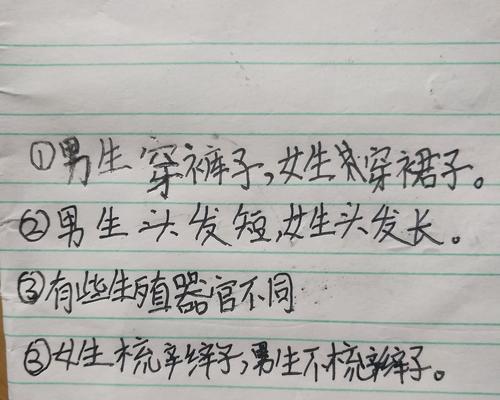 ①男生穿裤子,女生穿裙子。
②男生头发短,女生头发长。
③有些生殖器官不同
③女生梳辫子,男生不梳辫子。